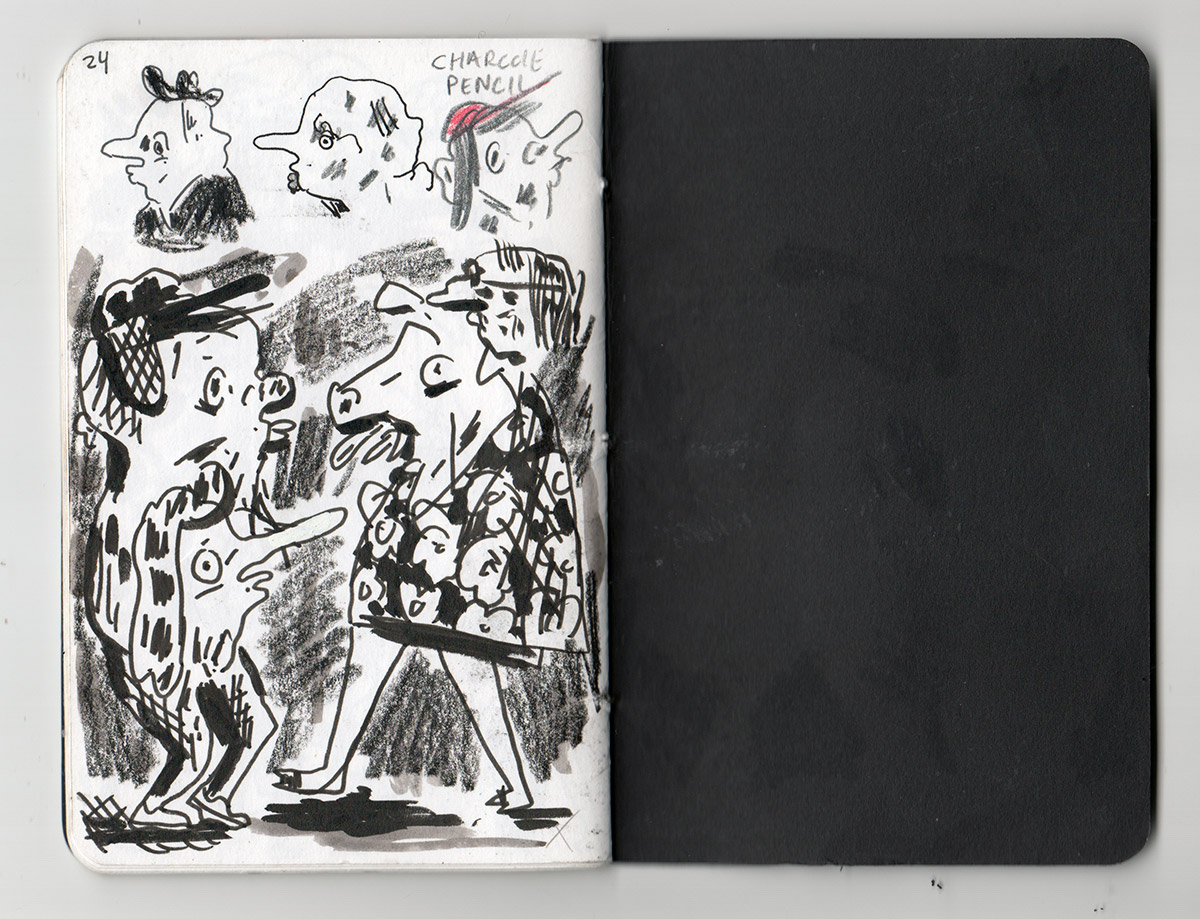 24
CHARCOLE
PENCIL